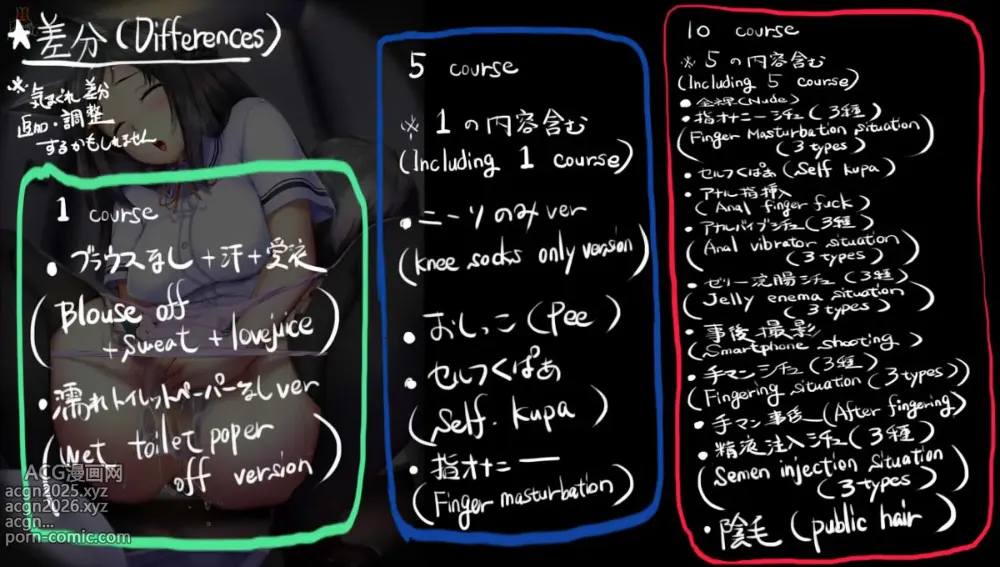 ★差分(Differences)
※気まぐれ差分
追加・調整
するかもしれません
1 course
• ブラウスなし+汗+愛液
(Blouse off
+ sweat + lovejuice)
• 濡れトイレットペーパーなしver
(wet toilet poper
off version)
5 course
※ 1の内容含む
(Including 1 course)
• ニーソのみver
(knee socks only version)
• おしっこ (Pee)
• セルフくぱあ
(Self. kupa)
• 指オナニー
(Finger masturbation)
10 course
※ 5の内容含む
(Including 5 course)
• 全裸(Nude)
• 指オナニーシチュ(3種)
(Finger Masturbation situation
(3 types))
• セルフくぱあ(Self kupa)
• アナル指挿入
(Anal finger fuck)
• アナルバイブシチュ(3種)
(Anal vibrator situation
(3 types))
• ゼリー浣腸シチュ(3種)
(Jelly enema situation
(3 types))
• 事後撮影
(Smartphone shooting)
• 手マンシチュ(3種)
(Fingering situation (3 types))
• 手マン事後(After fingering)
• 精液注入シチュ(3種)
(Semen injection situation
(3 types))
• 陰毛 (public hair)
ACG漫画网
acgn2025.xyz
acgn2026.xyz
acgn...
porn-comic.com